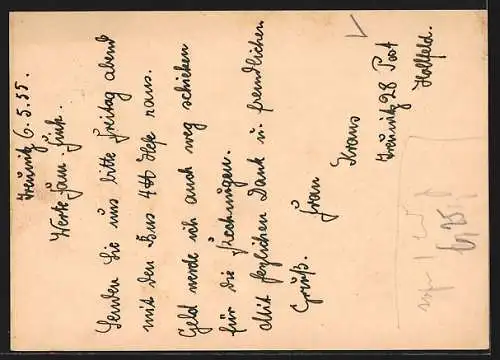 Treunitz 6.5.35.
Werte Fam. Fink.
Senden Sie uns bitte Freitag abend
mit den Bus 4 ℔ Hefe raus.
Geld werde ich auch weg schicken
für die Rechnungen.
Mit herzlichen Dank u. freundlichen
Gruß. Frau
Kraus
Treunitz 28 Post
Hollfeld.